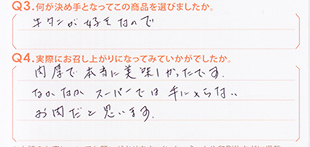 Q3.何が決め手となってこの商品を選びましたか。
牛タンが好きなので
Q4.実際にお召し上がりになってみていかがでしたか。
肉厚で本当に美味しかったです。
なかなかスーパーでは手に入らない
お肉だと思います。